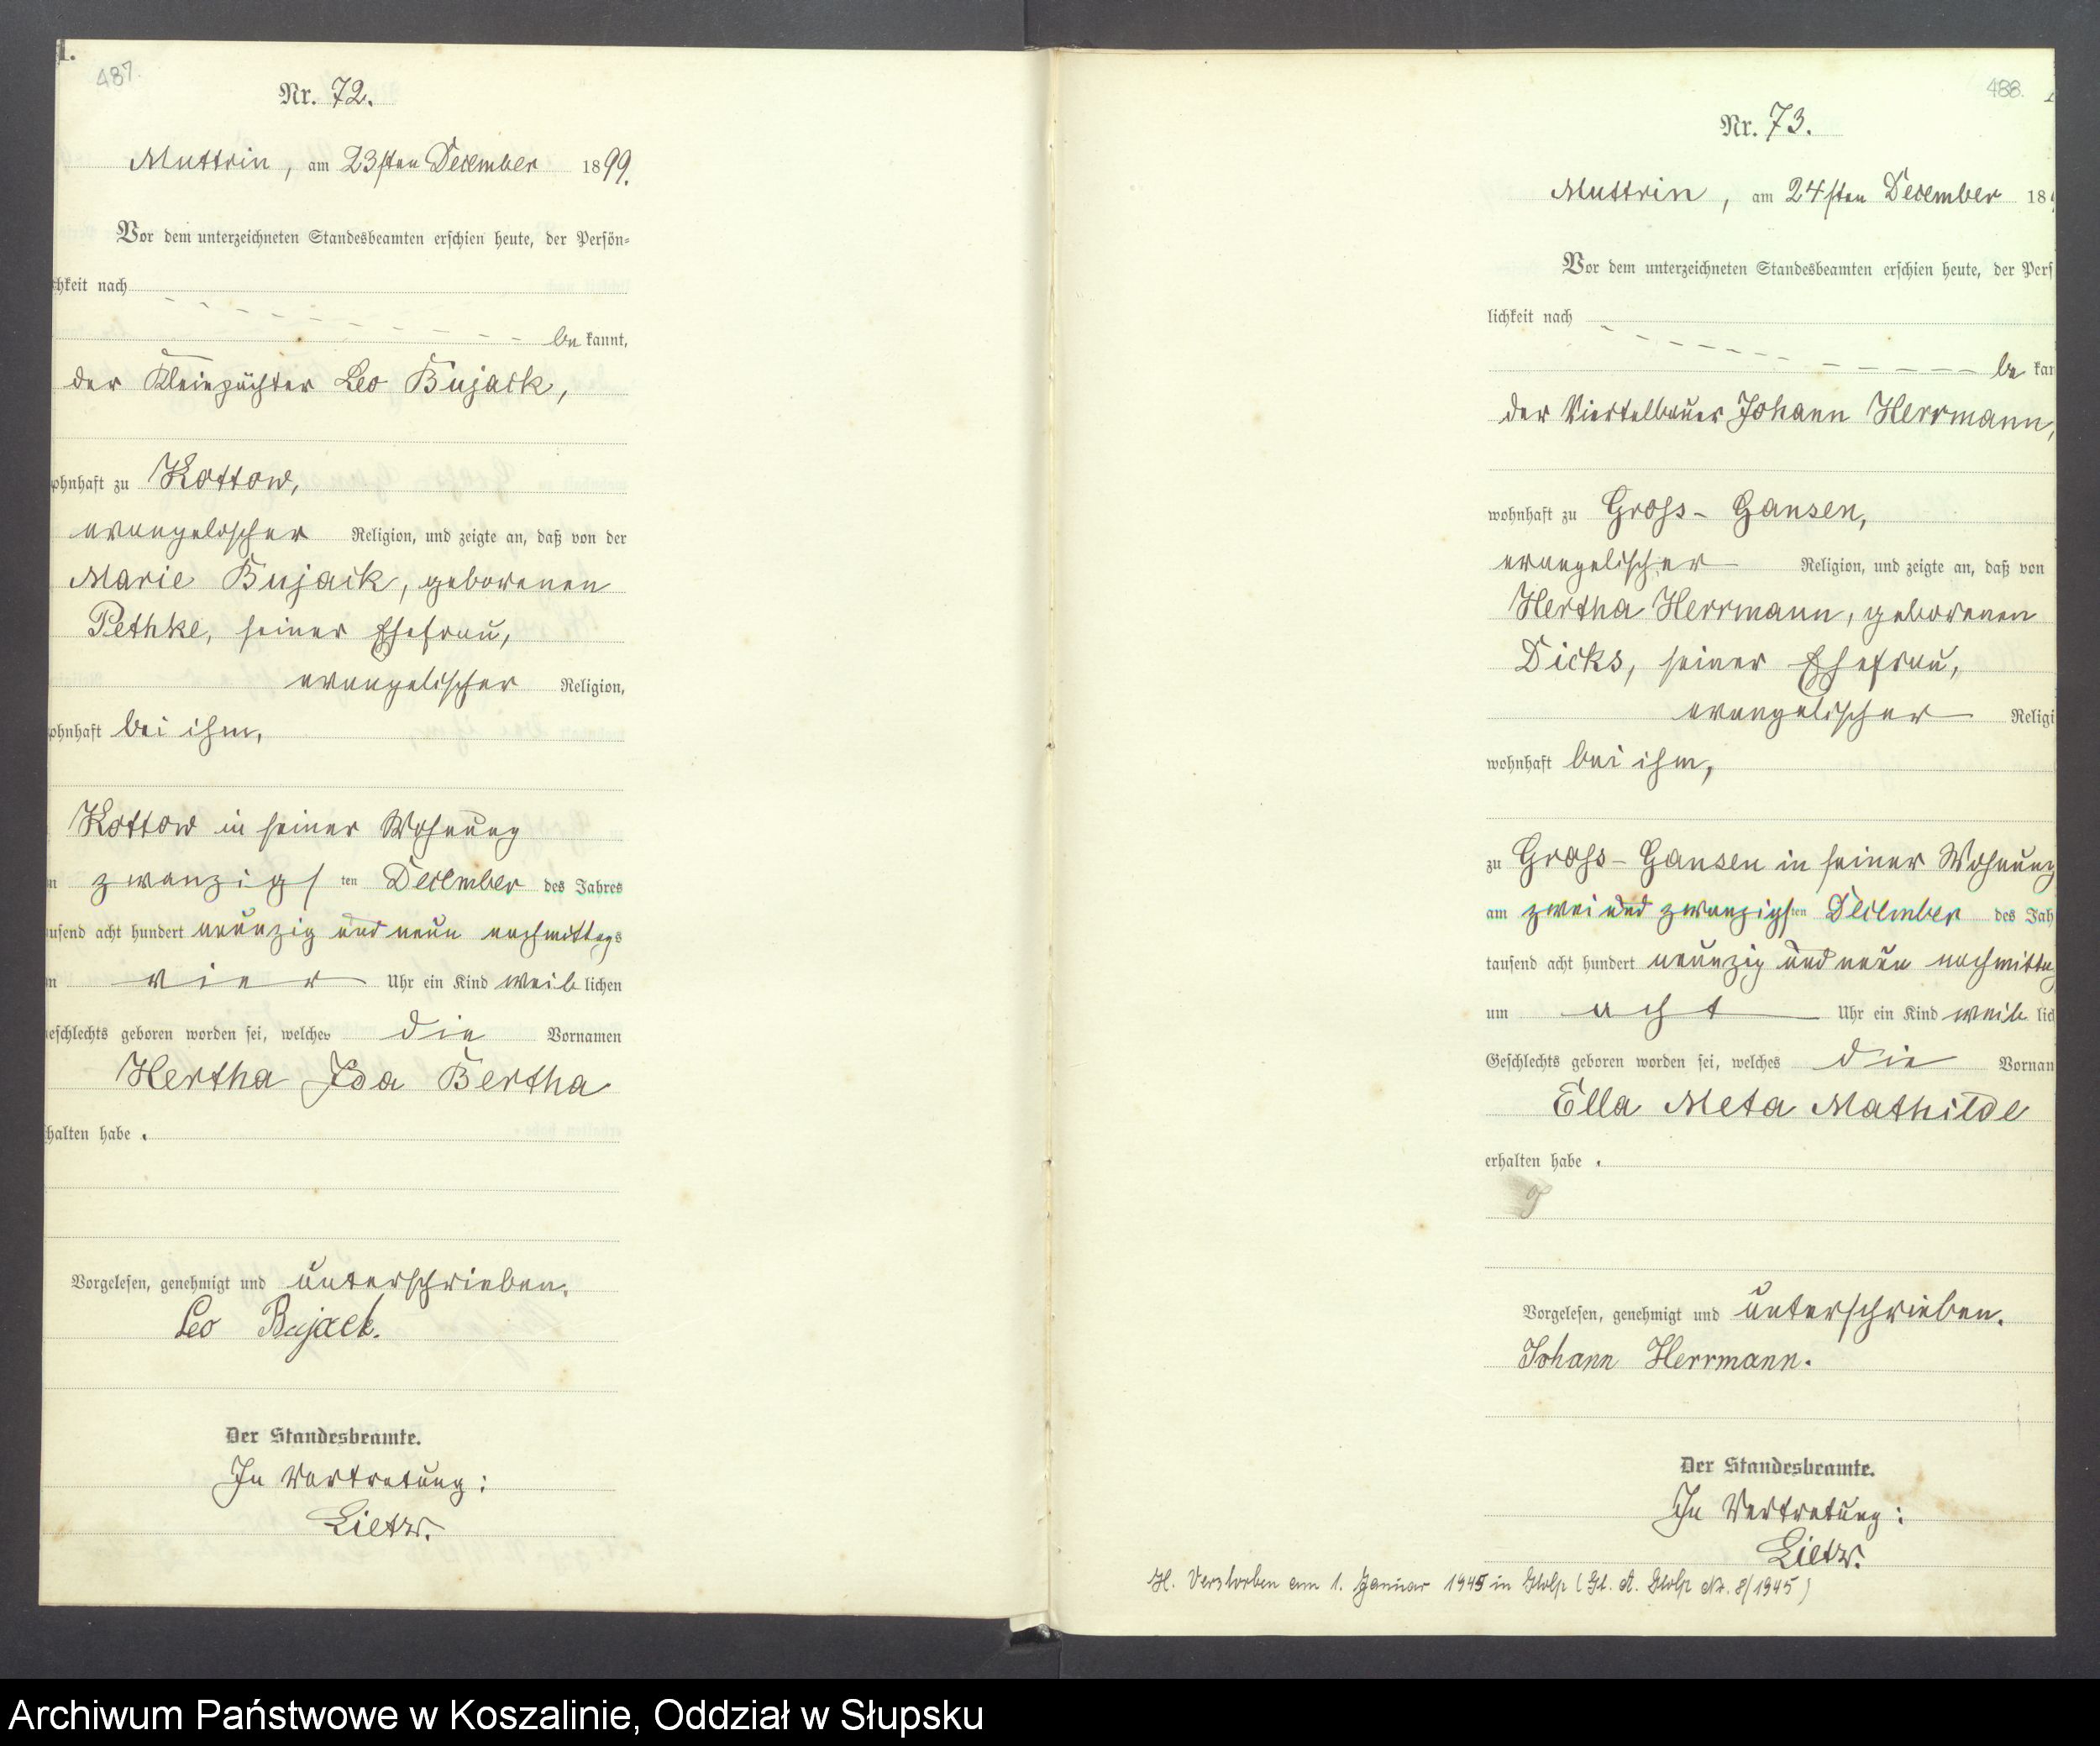 1.
487.
Nr. 72.
Muttrin, am 23sten December 1899.
Vor dem unterzeichneten Standesbeamten erschien heute, der Persön=
hkeit nach
be kannt,
der Kleinpächter Leo Bujack,
ohnhaft zu Kottow,
evangelischer Religion, und zeigte an, daß von der
Marie Bujack, geborenen
Pethke, seiner Ehefrau,
evangelischer Religion,
ohnhaft bei ihm,
Kottow in seiner Wohnung
n zwanzigsten December des Jahres
usend acht hundert neunzig und neun nachmittags
m vier Uhr ein Kind weiblichen
eschlechts geboren worden sei, welches die Vornamen
Hertha Ida Bertha
halten habe.
Vorgelesen, genehmigt und unterschrieben.
Leo Bujack.
Der Standesbeamte.
In Vertretung:
Lietz.
488.
Nr. 73.
Muttrin, am 24sten December 189
Vor dem unterzeichneten Standesbeamten erschien heute, der Pers
lichkeit nach
be kan
der Viertelbauer Johann Herrmann,
wohnhaft zu Gross-Gansen,
evangelischer Religion, und zeigte an, daß von
Hertha Herrmann, geborenen
Dicks, seiner Ehefrau,
evangelischer Religi
wohnhaft bei ihm,
zu Gross-Gansen in seiner Wohnung
am zwei und zwanzigsten December des Jah
tausend acht hundert neunzig und neun nachmittag
um acht Uhr ein Kind weiblic
Geschlechts geboren worden sei, welches die Vornam
Ella Meta Mathilde
erhalten habe.
Vorgelesen, genehmigt und unterschrieben.
Johann Herrmann.
Der Standesbeamte.
In Vertretung:
Lietz.
H. Verstorben am 1. Januar 1945 in Stolp (St. A. Stolp Nr. 8/1945)
Archiwum Państwowe w Koszalinie, Oddział w Słupsku